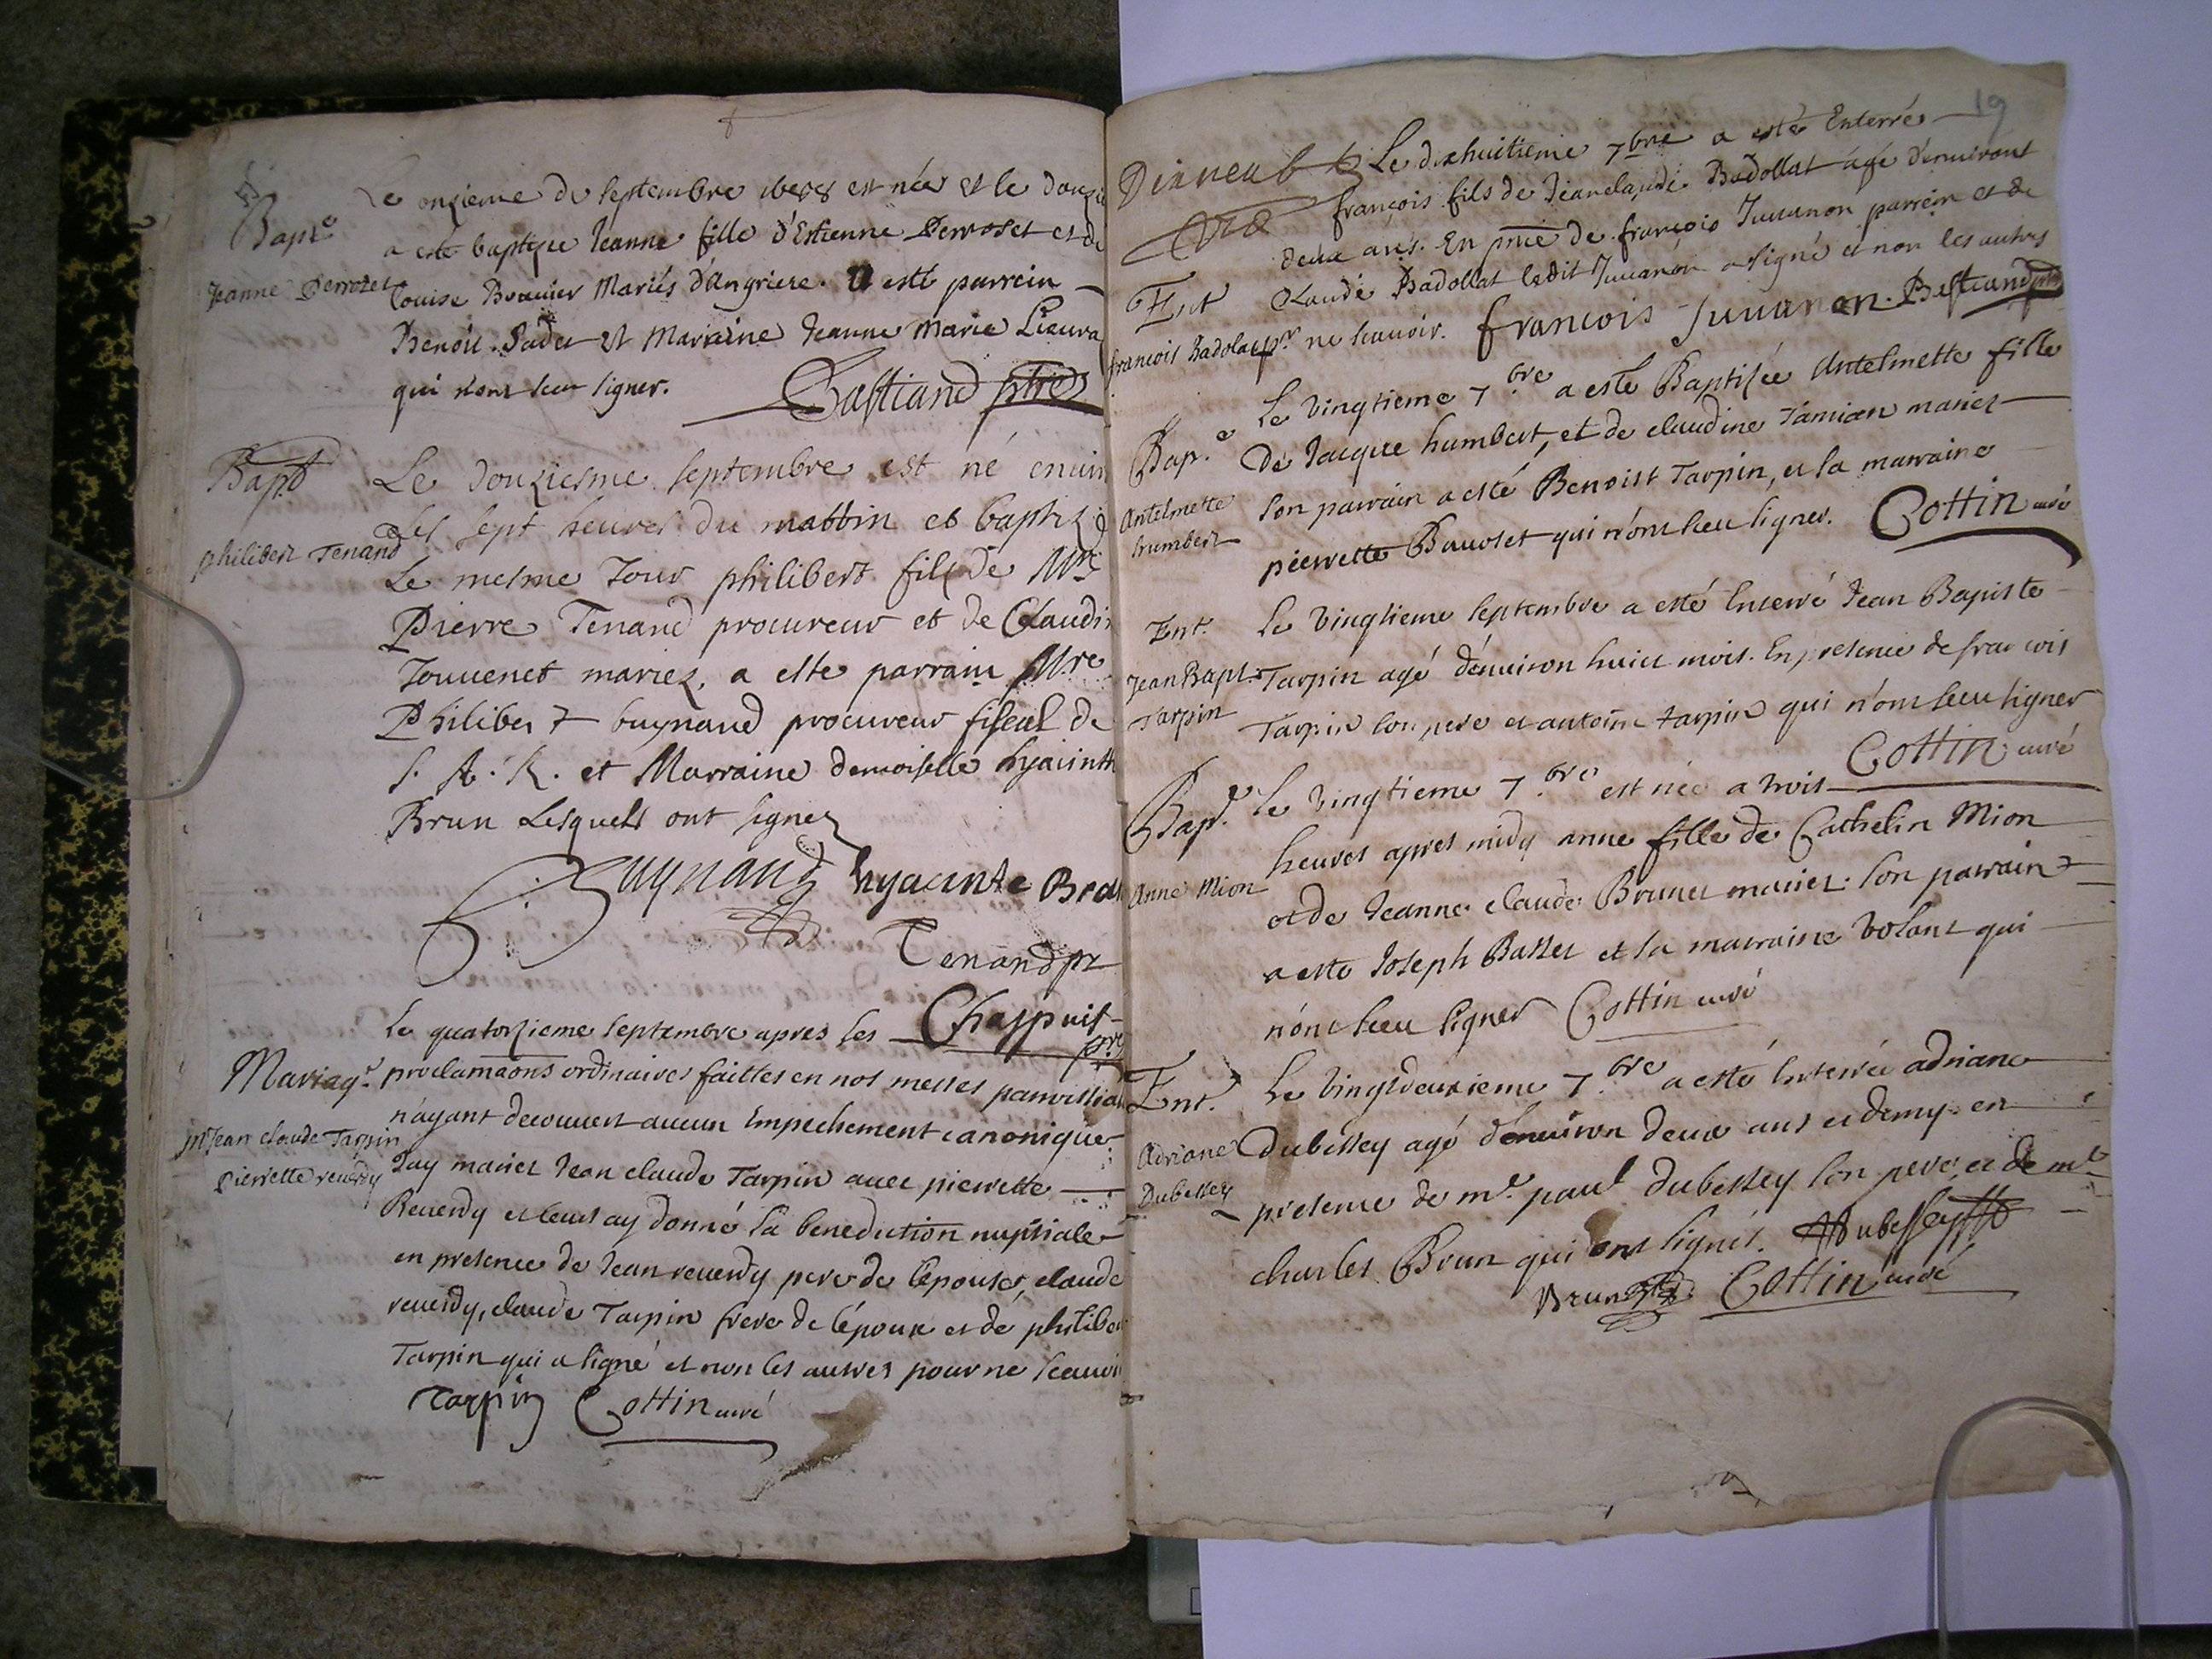 Bapt.e
Jeanne Perrozet
Le onzieme de septembre est née et le douzie
a esté baptizee Jeanne fille d'Estienne Perroset et de
Louise Bouuier Mariés d'Angriere. a esté parrein
Benoit Sadet et Marraine Jeanne Marie Lieura
qui n'ont sceu signer. Bastiand ptre
Bapt
philibert Tenand
Le douziesme septembre est né enuir
Les sept heures du mattin et baptizé
Le mesme Jour philibert fils de Mre
Pierre Tenand procureur et de Claudin
Jouuenet mariez, a este parrain Mre
Philibert buynand procureur fiscal de
S. A. R. et Marraine demoiselle hyacinth
Brun Lesquels ont signez
Buynand hyacinte Brun
Tenand pr
Chappuis
ptre
Mariag.e
Mr Jean claude Tarpin
Pierrette reuerdy
Le quatorzieme septembre apres les
proclamaõns ordinaires faittes en nos messes parroissia
n'ayant decouuert aucun Empechement canonique
J'ay mariez Jean claude Tarpin auec pierrette
Reuerdy et leur ay donné la benediction nuptiale
en presence de Jean reuerdy pere de l'epouse, claude
reuerdy, claude Tarpin frere de l'époux et de philiber
Tarpin qui a signé et non les autres pour ne scauoir
Tarpin Cottin curé
19
Ent
francois Badolat
Le dixhuitieme 7bre a esté Enterré
françois fils de Jeanclaude Badollat agé d'enuiront
deux ans. En pñce de françois Juuanon parrein et de
Claude Badollat ledit Juuanon a signé et non les autres
pr ne scauoir. francois Juuanon. Bastiand ptre
Bap.e
Antelmette
humbert
Le vingtieme 7.bre a esté Baptisée Antelmette fille
De Jacque humbert, et de claudine Tamian mariez
son parrain a esté Benoist Tarpin, et la marraine
pierrette Bauolet qui n'ont sceu signer. Cottin curé
Ent.
Jean Bapt.e
Tarpin
Le vingtieme septembre a esté Enterré Jean Bapiste
Tarpin agé d'enuiron huict mois. En presence de francois
Tarpin son pere et antoine tarpin qui n'ont sceu signer
Cottin curé
Bap.e
Anne Mion
Le vingtieme 7.bre est née a trois
heures apres midy anne fille de Cathelin Mion
et de Jeanne claude Brunet mariez. son parrain
a este Joseph Basset et la marraine volant qui
n'ont sceu signer Cottin curé
Ent.
Adriane
Dubessey
Le vingtdeuxieme 7.bre a esté Enterrée adriane
Dubessey agé d'enuiron deux ans et demy en
presence de m.e paul dubessey son pere, et de m.e
charles Brun qui ont signés. Dubessey
Brun Cottin curé